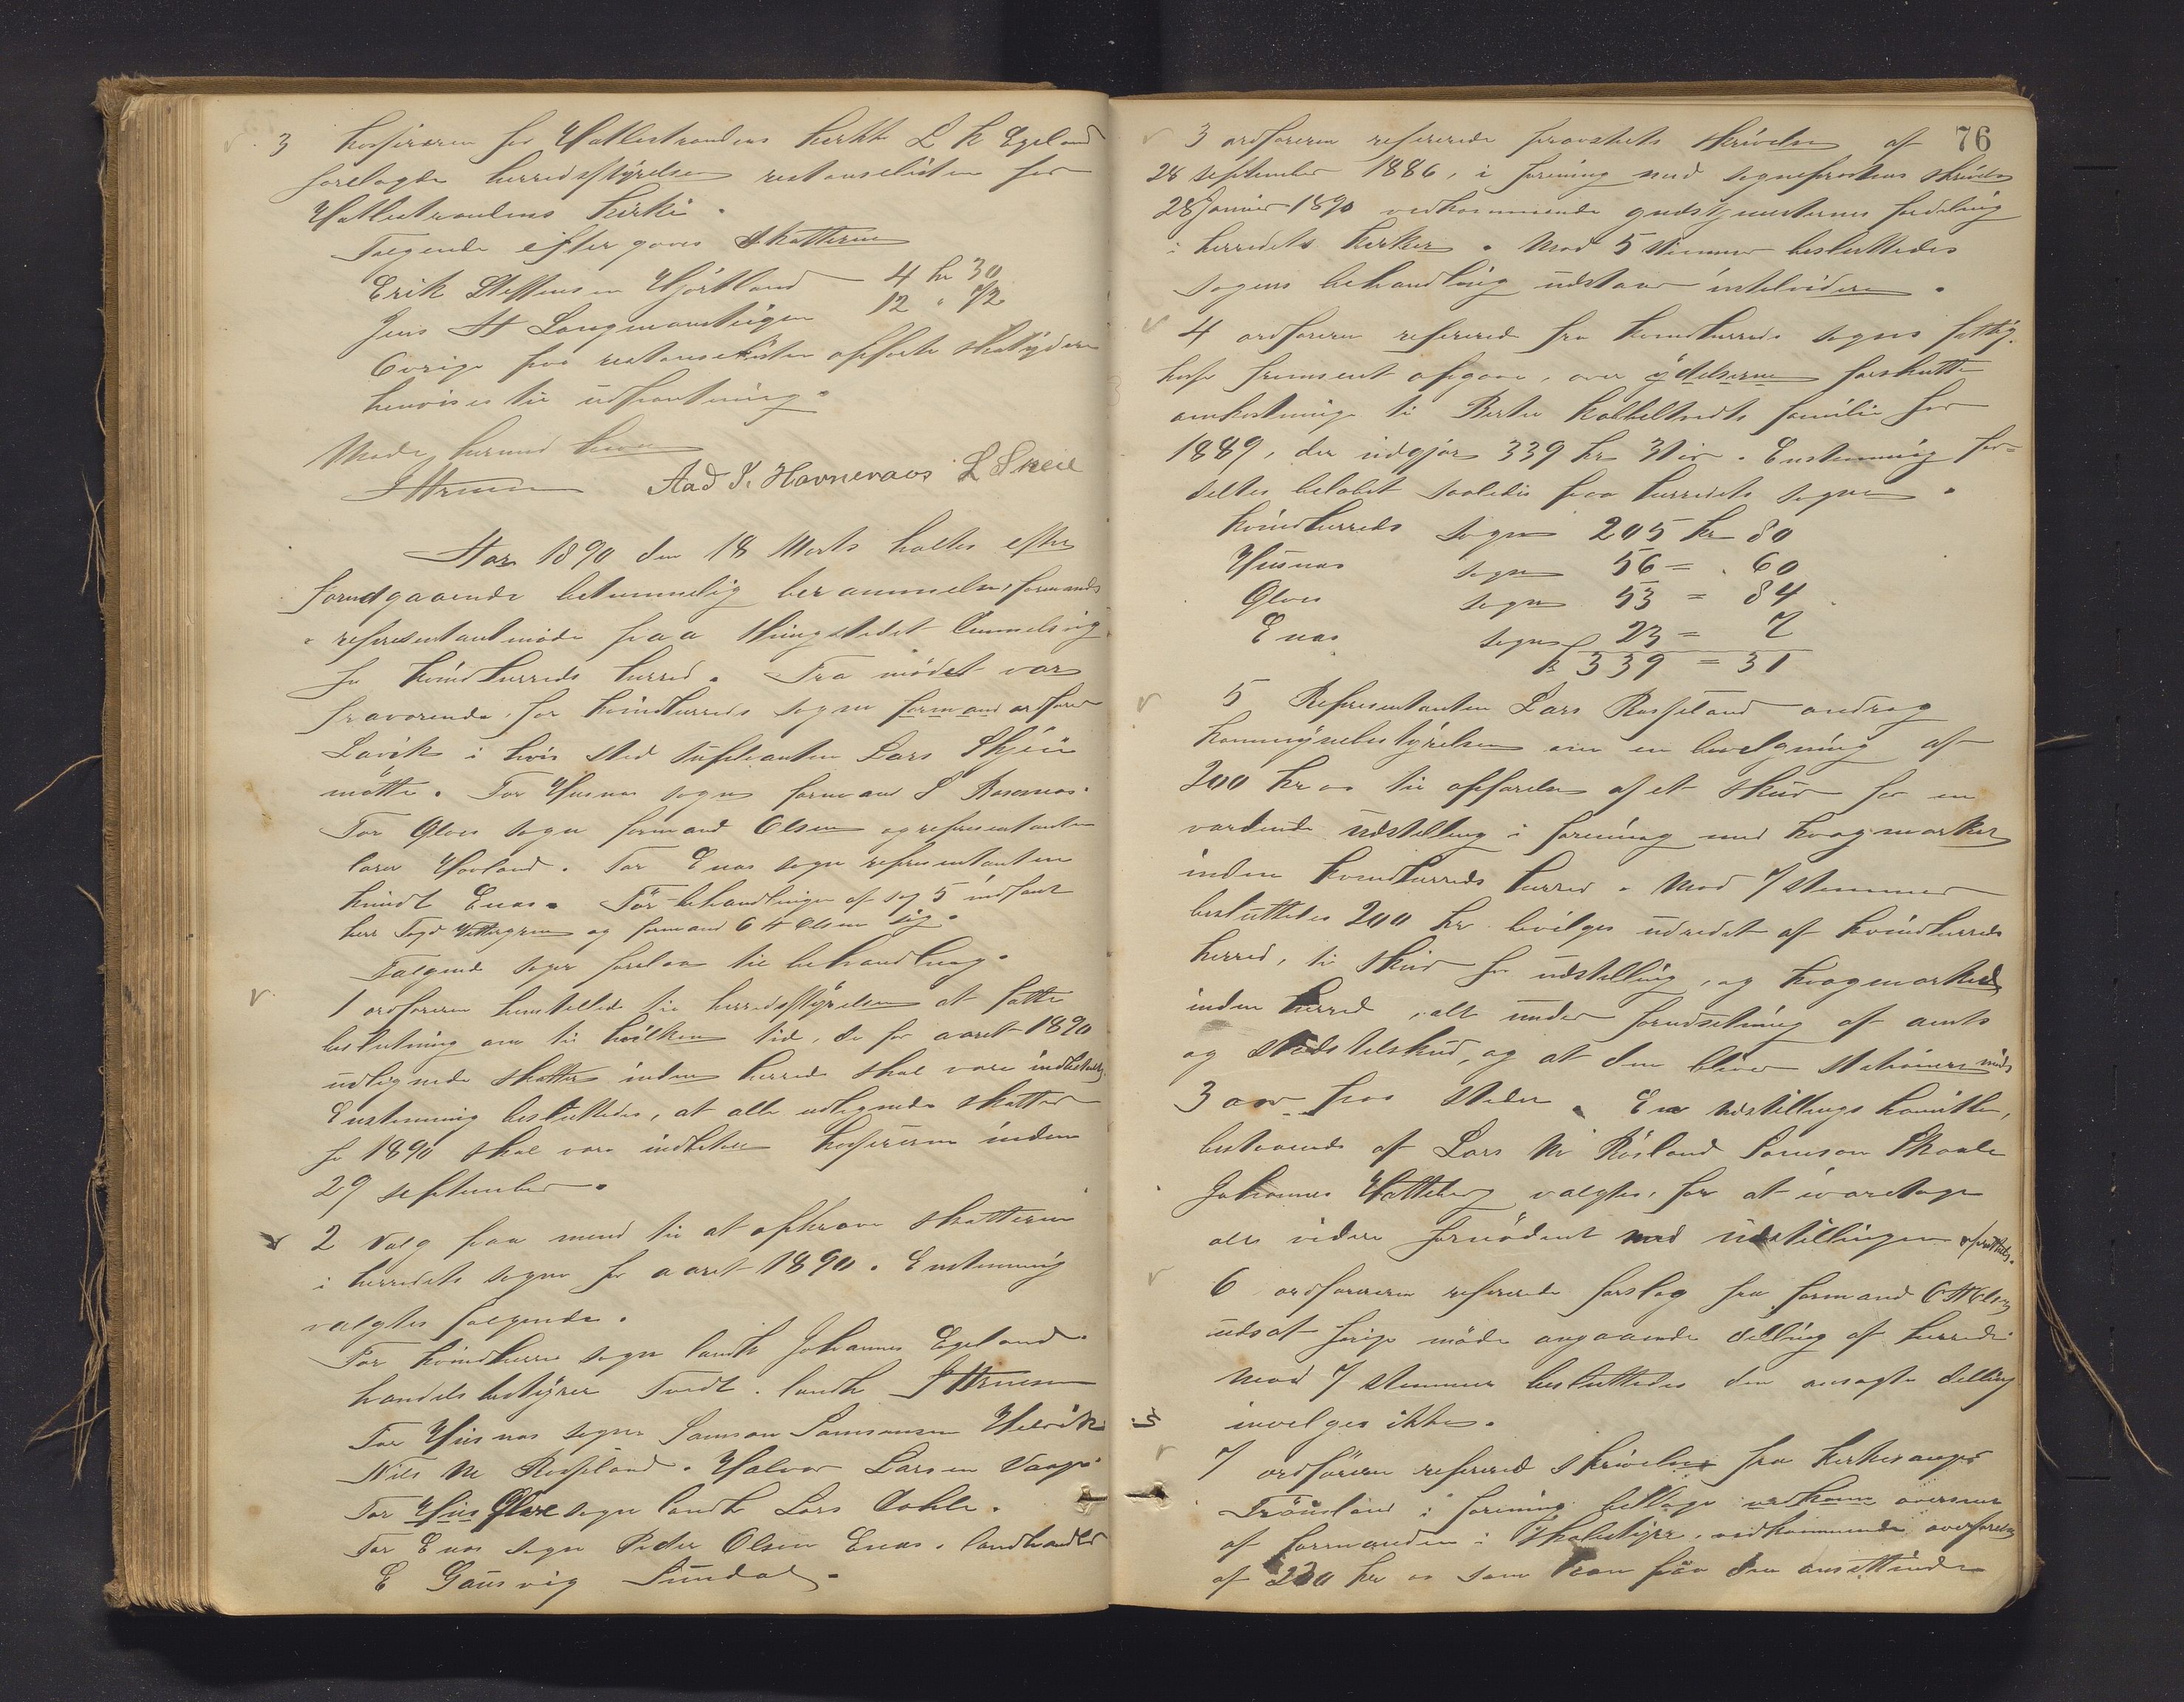 3 Kassereren for Hatlestrandens kirke L K Egeland
forelagde herredsstyrelsen restanselisten for
Hatlestrandens kirke.
Følgende eftergaves skatterne
Erik Steffensen Hjørtland 4 kr 30
Jens A Langmansteigen 12 " 72
Øvrige paa restanselisten opførte skatydere
henvises til udpantning.
Møde herned
Aad J. Havnevaas L Skeie
Aar 1890 den 18 Marts holtes efter
forudgaaende betimmelig berammelse, formands
representantmøde paa thingstedet Ømmelsvig
for Kvindherreds herred. Fra mødet var
fraværende, for Kvindherreds sogn formand ordfører
Lavik i hvis sted supleanten Lars Skjeie
mötte. For Husnes sogn formand S Rosenes.
For Øloes sogn formand Olsen og representanten
lærer Hovland. For Enæs sogn representanten
Knudt Enæs. Før behandlingen af sag 5 indfant
herr Fogd Wettergren og formand O H Olsen sig.
Følgende sager forelaa til behandling.
1 ordføreren henstillede til herredsstyrelsen at fatte
beslutning om til hvilken tid, de for aaret 1890
udlignede skatter inden herred skal være indbetalt.
Enstemmig besluttedes, at alle udlignede skatter
for 1890 skal være indbetalt kassereren inden
29 september.
2 Valg paa mend til at opkræve skatterne
i herredets sogne for aaret 1890. Enstemmig
valgtes følgende.
For Kvindherre sogn landh Johannes Egeland
handelsbestyrer Tvedt. landh
For Husnes sogn Samson Samsonsen Helvik
Nils M Røssland. Halvor Larsen Vaage
For Hus Øloe sogn landh Lars Dahle.
For Enæs sogn Peder Olsen Enæs, landhandler
E Gausvig Sundal.
76
3 ordføreren refererede provstiets skrivelse af
28 september 1886, i forening med sogneprestens skrivelse
28 Januar 1890 vedkommende gudstjenesternes fordeling
i herredets kirker. Mod 5 stemmer besluttedes
sagens behandling udstaar intelvidere.
4 ordføreren refererede fra Kvindherreds sogns fattig-
kasse fremsent opgave, over ydelserne forskutte
omkostninge til Berte Kaldeltvedts familie for
1889, der udgjør 339 kr 31 ør. Enstemmig for-
deltes beløbet saaledes paa herredets sogne.
Kvindherreds sogn 205 kr 80
Husnes sogn 56 = 60
Øloes sogn 53 = 84
Enæs sogn 23 = 7
kr 339 = 31
5 Representanten Lars Røssland androg
kommynebestyrelsen om en bevilgning af
200 kr til opførelse af et skur for en
vordende Udstilling i forening med kvægmarker
inden Kvindherreds herred. Mod 7 stemmer
besluttedes 200 kr bevilges udredet af Kvindherreds
herred, til skur for udstilling, og kvægmarked
inden herred, alt under forudsetning af amts
og statstilskud, og at den bliver stationer mindst
3 aar paa stedet. En udstillings komitee,
bestaaende af Lars M Røsland Samson Skaale
Johannes Hatteberg valgtes, for at ivaretage
alt videre fornødent med udstillingen oprettelse.
6 ordføreren refererede forslag fra formand O H Olsen
udsat forige møde angaaende delling af herredet
Mod 7 stemmer besluttedes den ansøgte delling
invelges ikke.
7 ordføreren refererede skrivelse fra kirkesanger
Frøisland i forening bellage vedkom
af formanden i Skolestyre, vedkommende overførelse
af 230 kr som kan faa den ansættende